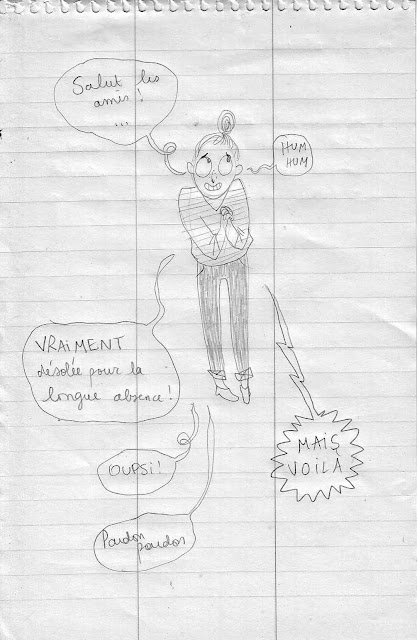 Salut les
amis !
...
HUM
HUM
VRAIMENT
désolée pour la
longue absence !
OUPSI !
Pardon
pardon
MAIS
VOILÀ